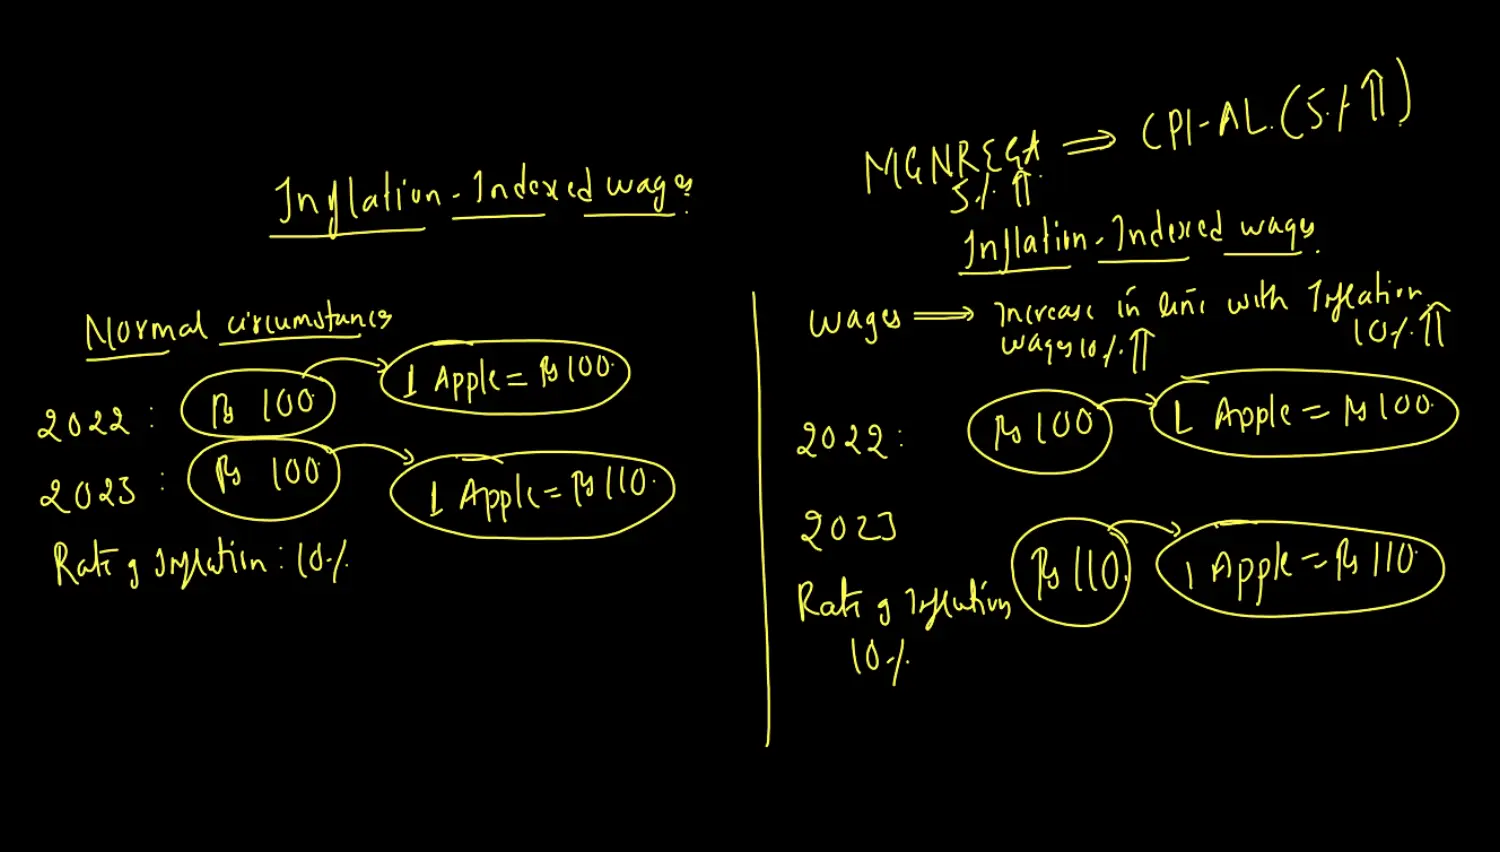 Inflation-Indexed wages
Normal circumstances
2022 : Rs 100 1 Apple = Rs 100.
2023 : Rs 100 1 Apple = Rs 110.
Rate of Inflation : 10%
MGNREGA ⇒ CPI-AL. (5% ⇑)
5% ⇑
Inflation-Indexed wages.
Wages ⇒ Increase in line with Inflation
wages 10% ⇑ 10% ⇑
2022 : Rs 100 1 Apple = Rs 100.
2023 Rs 110. 1 Apple = Rs 110.
Rate of Inflation
10%